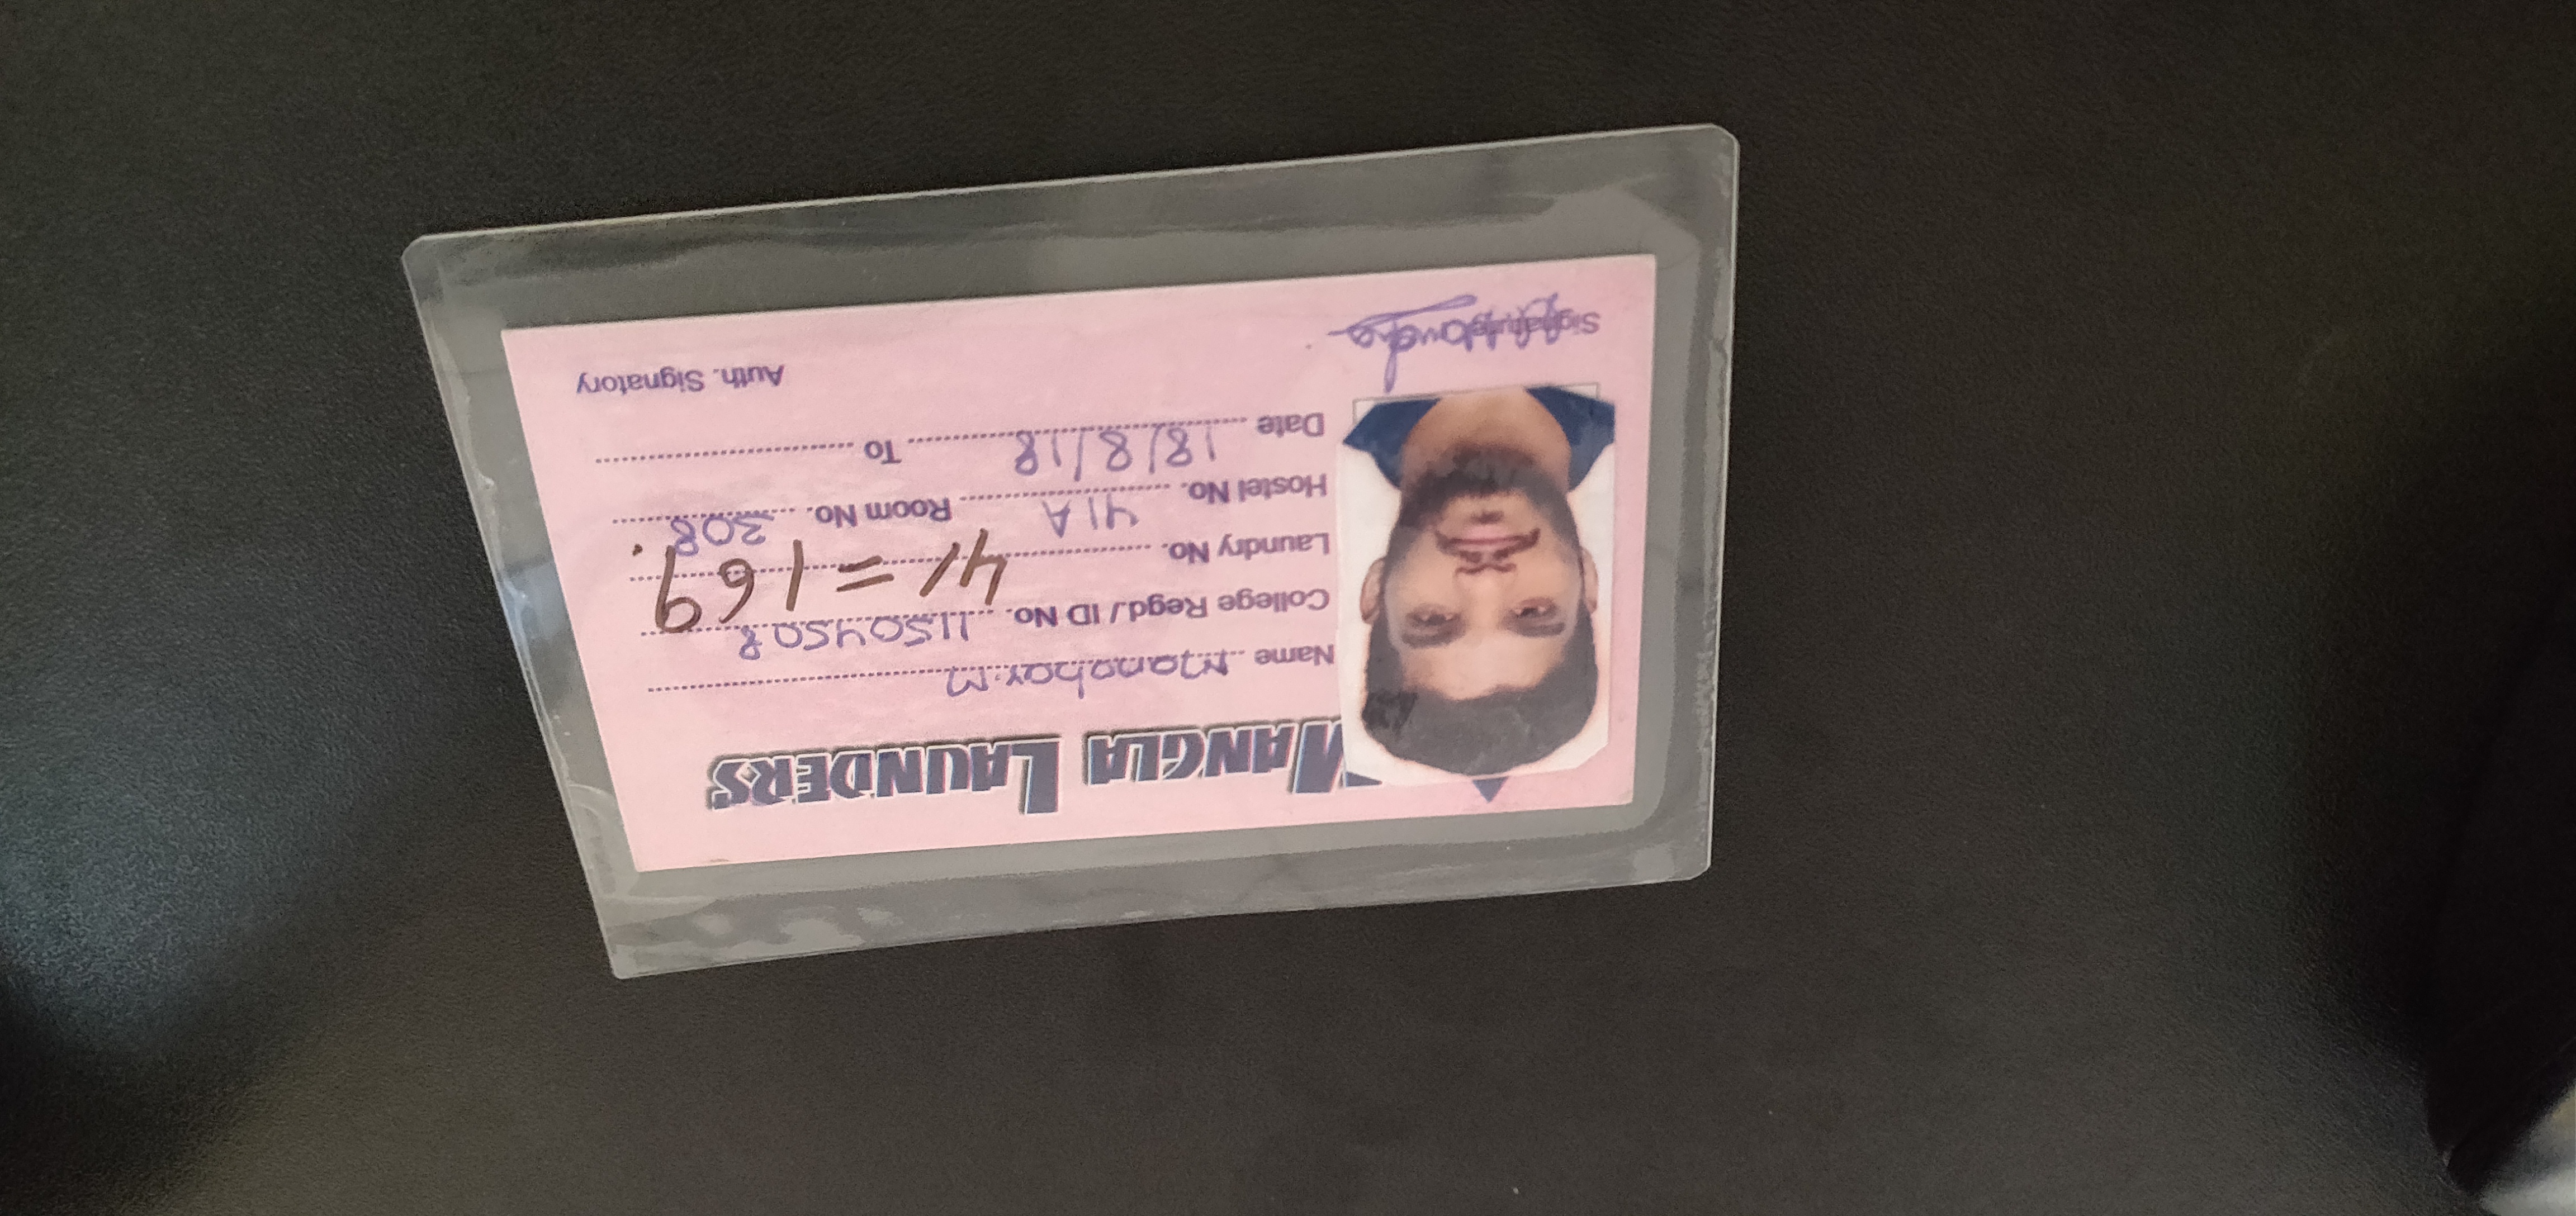 MANGLA LAUNDERS
Name Manohar.M
College Regd./ ID No. 11504508
Laundry No. 41/=169.
Hostel No. 41A Room No. 308
Date 18/8/18 To
Auth. Signatory
Signature